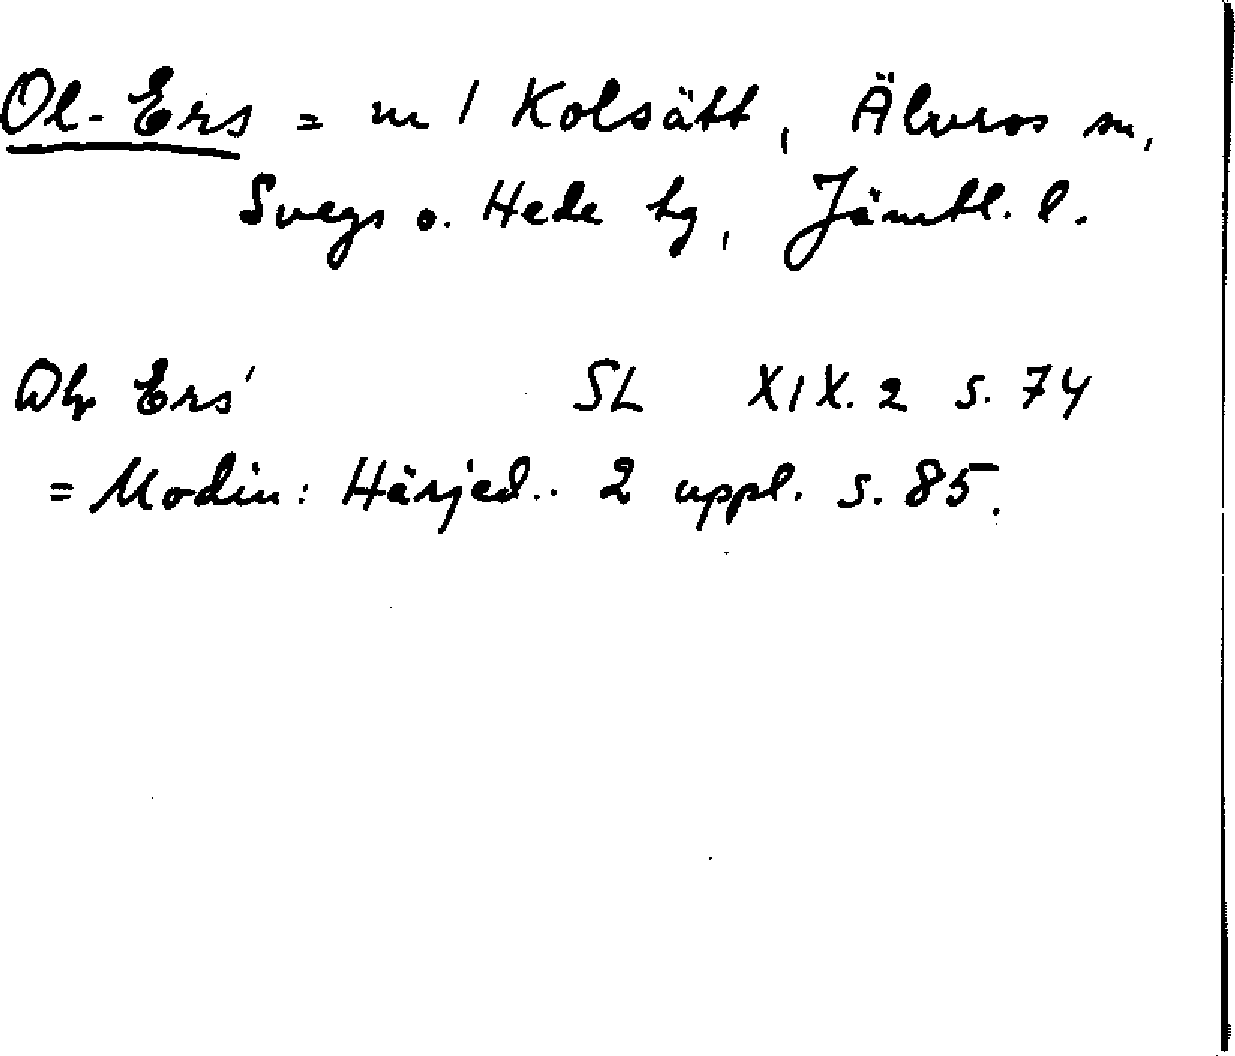 Ol-Ers = nr 1 Kolsätt, Älvros sn,
Svegs o. Hede hg, Jämtl. l.
Ers' SL XIX. 2 s. 74
= Modin: Härjed.. 2 uppl. s. 85.